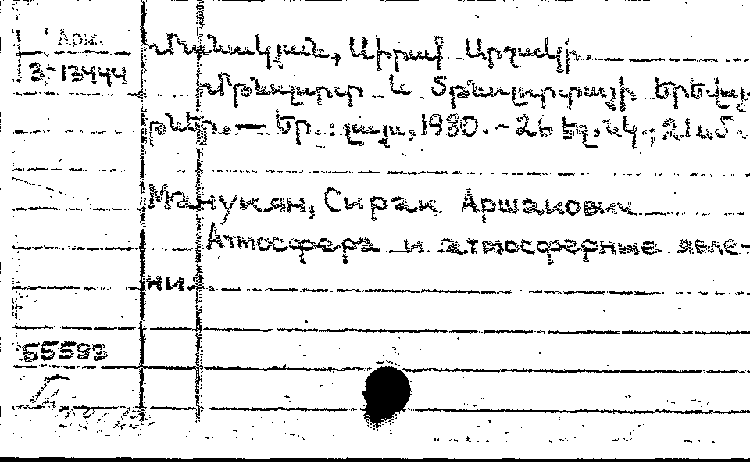 Арм.
3-13444
Մանակյան, Սիրակ Արշակի.
Մթնոլորտ և մթնոլորտային երևույ
թներ. — Եր.: լույս, 1980. - 26 էջ, նկ.; 21 սմ.
Манукян, Сирак Аршакович
Атмосфера и атмосферные явле-
ни.
55593